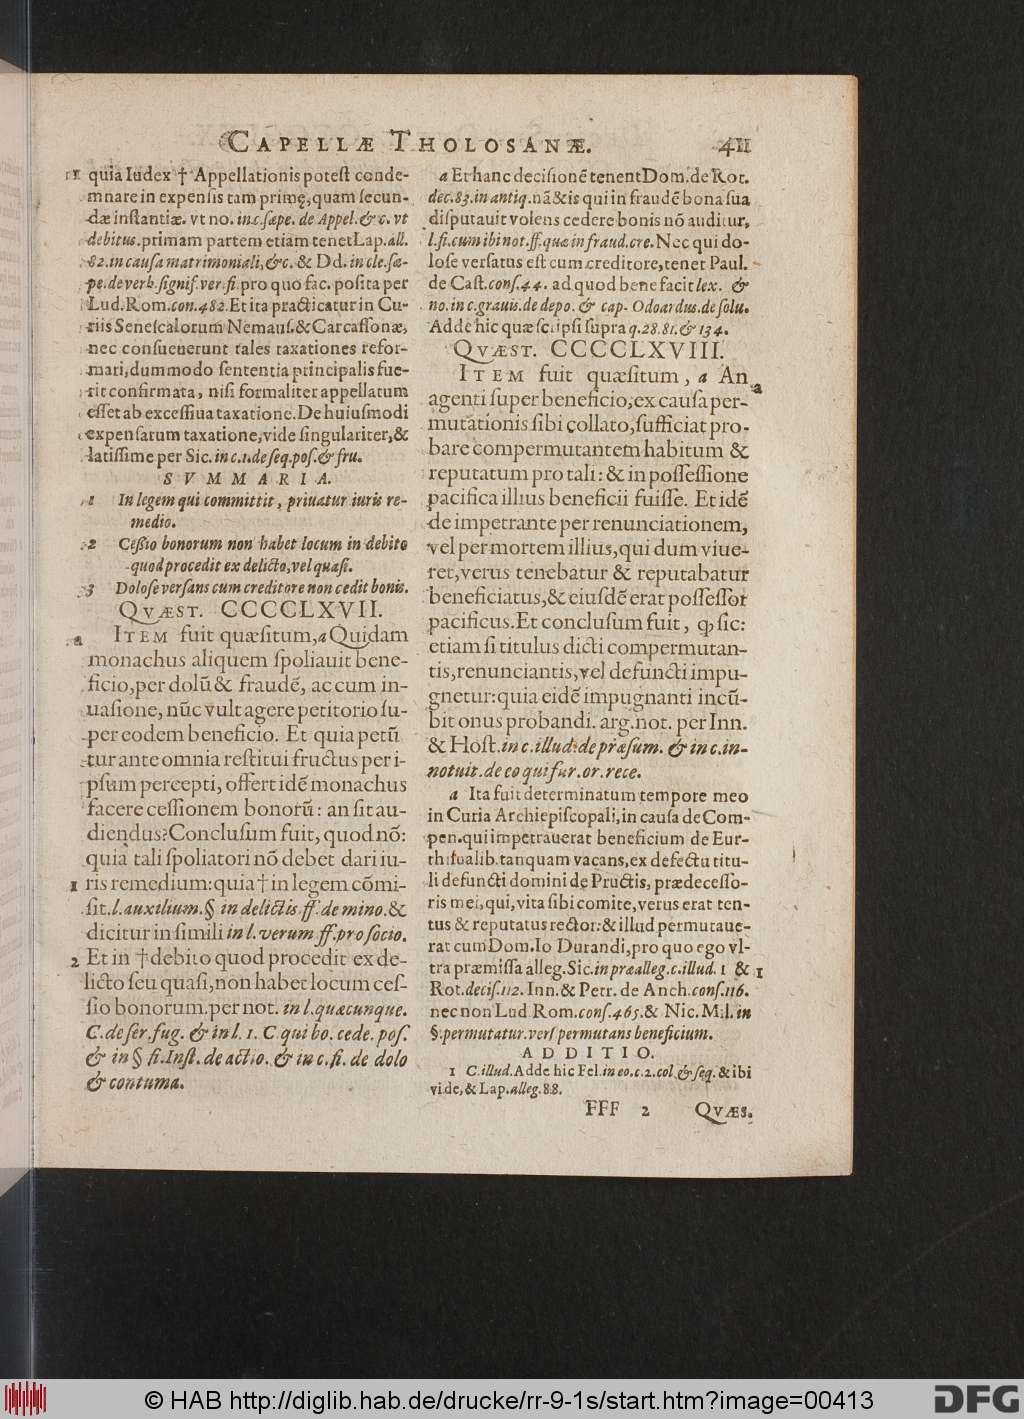 CAPELLÆ THOLOSANÆ. 411
11 quia Iudex † Appellationis potest conde-
mnare in expensis tam primę, quam secun-
dæ instantiæ. vt no. in c. sæpe. de Appel. & c. vt
debitus. primam partem etiam tenet Lap. all.
82. in causa matrimoniali, &c. & Dd. in cle. sæ-
pe. de verb. signif. ver. fi. pro quo fac. posita per
Lud. Rom. con. 482. Et ita practicatur in Cu-
riis Senescalorum Nemaus. & Carcassonæ,
nec consueuerunt tales taxationes refor-
mari, dummodo sententia principalis fue-
rit confirmata, nisi formaliter appellatum
esset ab excessiua taxatione. De huiusmodi
expensarum taxatione, vide singulariter, &
latissime per Sic. in c. 1. de seq. pos. & fru.
SVMMARIA.
1 In legem qui committit, priuatur iuris re-
medio.
2 Cessio bonorum non habet locum in debito
quod procedit ex delicto, vel quasi.
3 Dolose versans cum creditore non cedit bonis.
QVÆST. CCCCLXVII.
a ITEM fuit quæsitum, a Quidam
monachus aliquem spoliauit bene-
ficio, per dolū & fraudē, ac cum in-
uasione, nūc vult agere petitorio su-
per eodem beneficio. Et quia petū
tur ante omnia restitui fructus per i-
psum percepti, offert idē monachus
facere cessionem bonorū: an sit au-
diendus? Conclusum fuit, quod nō:
quia tali spoliatori nō debet dari iu-
1 ris remedium: quia † in legem cōmi-
sit. l. auxilium. § in delictis. ff. de mino. &
dicitur in simili in l. verum ff. pro socio.
2 Et in † debito quod procedit ex de-
licto seu quasi, non habet locum ces-
sio bonorum. per not. in l. quæcunque.
C. de ser. fug. & in l. 1. C. qui bo. cede. pos.
& in § fi. Inst. de actio. & in c. fi. de dolo
& contuma.
a Et hanc decisionē tenent Dom. de Rot.
dec. 83. in antiq. nā & is qui in fraudē bona sua
disputauit volens cedere bonis nō auditur,
l. fi. cum ibi not. ff. quæ in fraud. cre. Nec qui do-
lose versatus est cum creditore, tenet Paul.
de Cast. cons. 44. ad quod bene facit lex. &
no. in c. grauis. de depo. & cap. Odoardus. de solu.
Adde hic quæ scripsi supra q. 28. 81. & 134.
QVÆST. CCCCLXVIII.
ITEM fuit quæsitum, a An a
agenti super beneficio, ex causa per-
mutationis sibi collato, sufficiat pro-
bare compermutantem habitum &
reputatum pro tali: & in possessione
pacifica illius beneficii fuisse. Et idē
de impetrante per renunciationem,
vel per mortem illius, qui dum viue-
ret, verus tenebatur & reputabatur
beneficiatus, & eiusdē erat possessor
pacificus. Et conclusum fuit, ꝙ sic:
etiam si titulus dicti compermutan-
tis, renunciantis, vel defuncti impu-
gnetur: quia eidē impugnanti incū-
bit onus probandi. arg. not. per Inn.
& Host. in c. illud. de præsum. & in c. in-
notuit. de eo qui fur. or. rece.
a Ita fuit determinatum tempore meo
in Curia Archiepiscopali, in causa de Com-
pen. qui impetrauerat beneficium de Eur-
thisualib. tanquam vacans, ex defectu titu-
li defuncti domini de Pructis, prædecesso-
ris mei, qui, vita sibi comite, verus erat ten-
tus & reputatus rector: & illud permutaue-
rat cum Dom. Io Durandi, pro quo ego vl-
tra præmissa alleg. Sic. in præalleg. c. illud. 1 & 1
Rot. decis. 112. Inn. & Petr. de Anch. cons. 116.
nec non Lud Rom. cons. 465. & Nic. Mil. in
§. permutatur. vers permutans beneficium.
ADDITIO.
1 C. illud. Adde hic Fel. in eo. c. 2. col & seq. & ibi
vide, & Lap. alleg. 88.
FFF 2 QVÆS.
© HAB http://diglib.hab.de/drucke/rr-9-1s/start.htm?image=00413
DFG